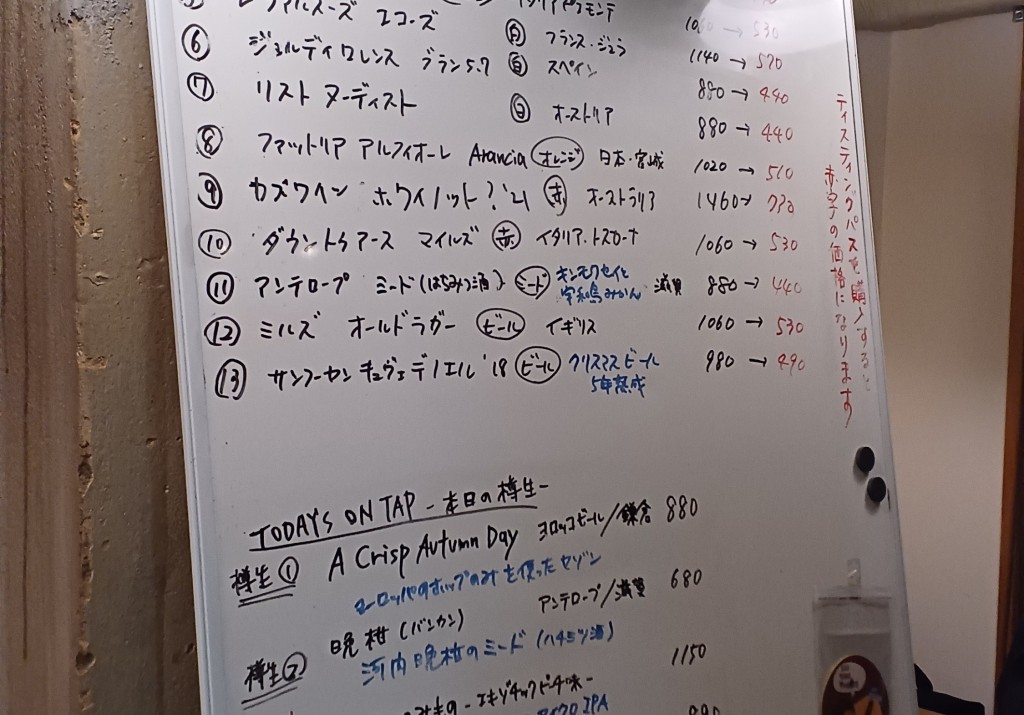 エコーズ 1060 → 530
⑥ ジェルディ ロレンス ブラン 5.7 白 フランス・ジュラ 1140 → 570
⑦ リスト ヌーディスト 白 スペイン 880 → 440
白 オーストリア 880 → 440
⑧ ファットリア アルフィオーレ Arancia オレンジ 日本・宮城 1020 → 510
⑨ カズワイン ホワイノット?'21 赤 オーストラリア 1460 →
⑩ ダウントゥアース マイルズ 赤 イタリア・トスカーナ 1060 → 530
⑪ アンテロープ ミード(はちみつ酒) ミード キンモクセイと 滋賀 880 → 440
宇和島みかん
⑫ ミルズ オールドラガー ビール イギリス 1060 → 530
⑬ サンフーセン キュヴェデノエル '18 ビール クリスマスビール 980 → 490
5年熟成
ティスティングパスを購入すると
赤字の価格になります
TODAY'S ON TAP - 本日の樽生 -
樽生① A Crisp Autumn Day ヨロッコビール/鎌倉 880
ヨーロッパのホップのみを使ったセゾン
樽生② 晩柑 (バンカン) アンテロープ/滋賀 680
河内晩柑のミード (ハチミツ酒)
- エキゾチックピーチ味 - 1150
IPA